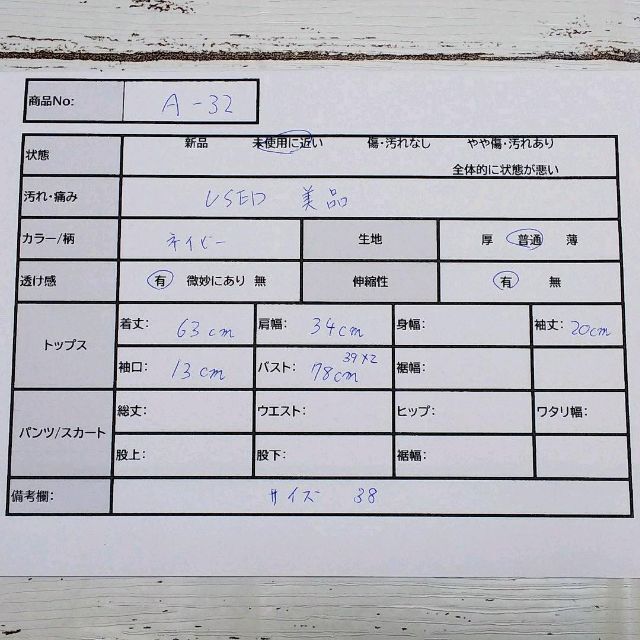 商品No: A-32
新品 未使用に近い 傷・汚れなし やや傷・汚れあり
状態
全体的に状態が悪い
汚れ・痛み USED 美品
カラー/柄 ネイビー 生地 厚 普通 薄
透け感 有 微妙にあり 無 伸縮性 有 無
トップス
着丈: 63cm 肩幅: 34cm 身幅: 袖丈: 20cm
袖口: 13cm バスト: 39×2 78cm 裾幅:
パンツ/スカート
総丈: ウエスト: ヒップ: ワタリ幅:
股上: 股下: 裾幅:
備考欄: サイズ 38